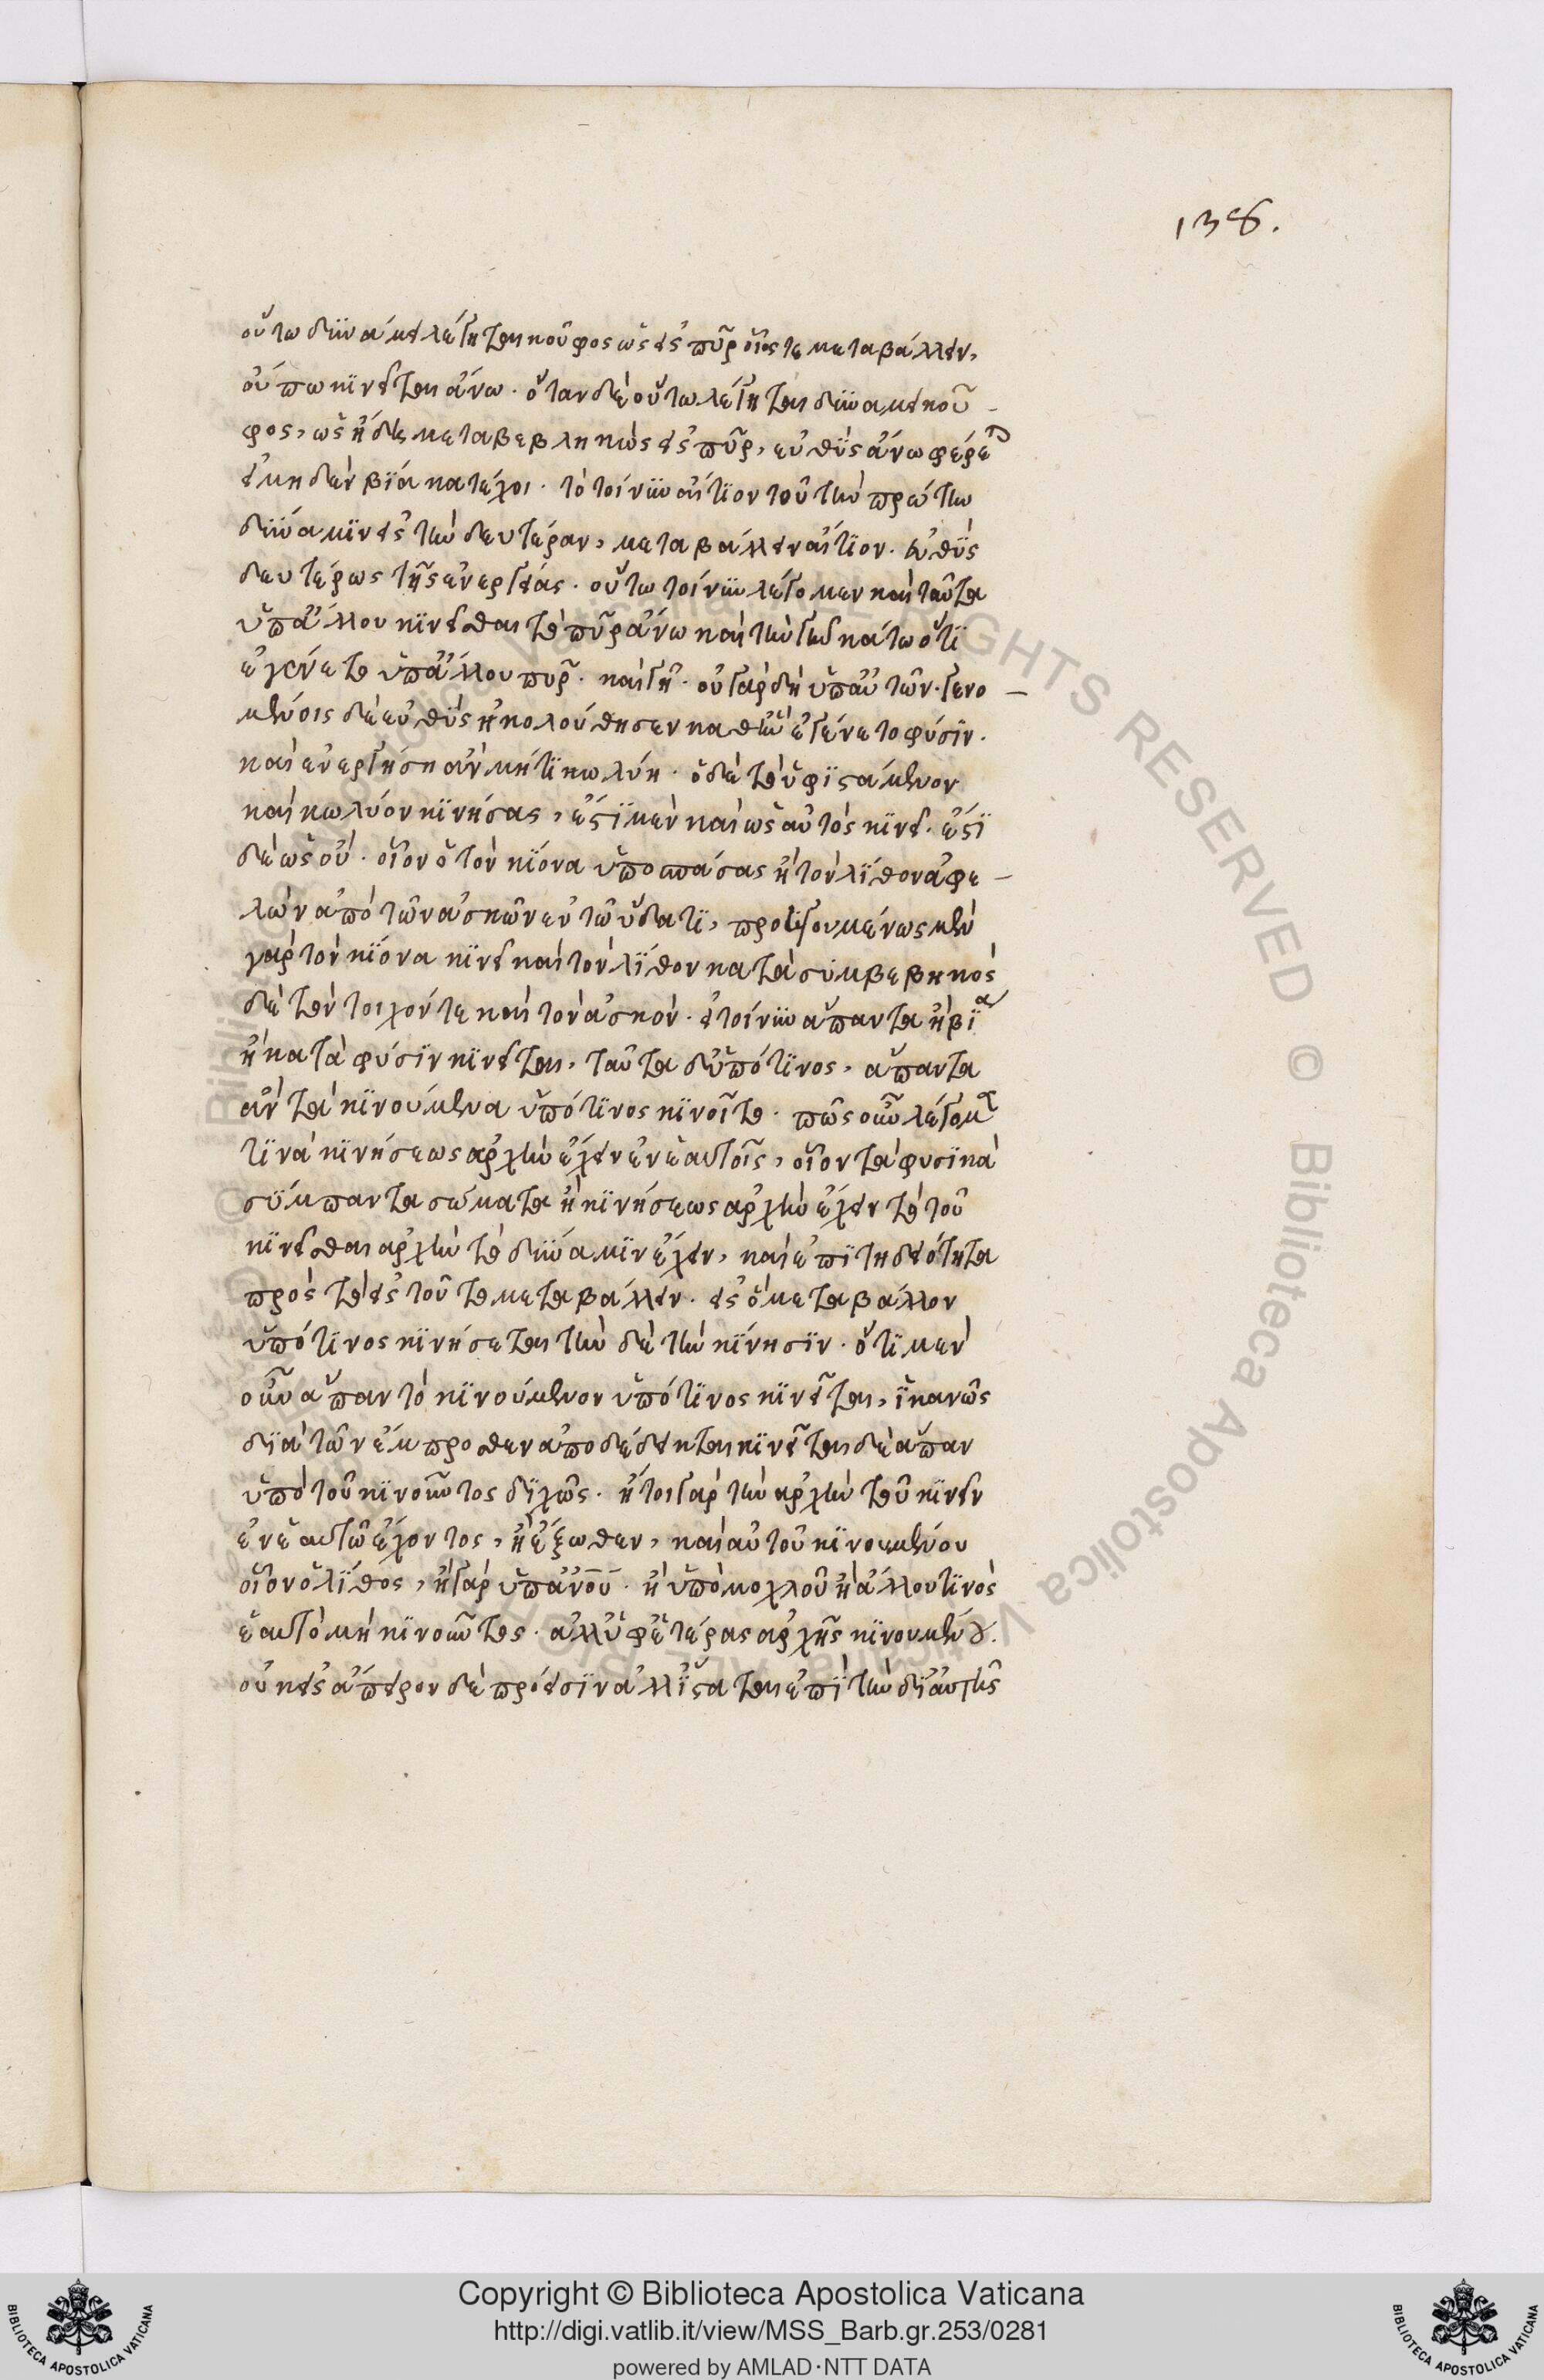 138.
οὕτω δυνάμει λέγηται κοῦφος ὡς εἰς πῦρ οἷός τε μεταβάλλειν,
οὔπω κινεῖται ἄνω. ὅταν δὲ οὕτω λέγηται δυνάμει κοῦ-
φος, ὡς ἤδη μεταβεβληκὼς εἰς πῦρ, εὐθὺς ἄνω φέρε
εἰ μηδὲν βίᾳ κατέχοι. τὸ τοίνυν αἴτιον τοῦ τὴν πρώτην
δύναμιν εἰς τὴν δευτέραν, μεταβάλλειν αἴτιον. εὐθὺς
δευτέρως τῆς ἐνεργείας. οὕτω τοίνυν λέγομεν καὶ ταῦτα
ὑπ' ἄλλου κινεῖσθαι τὸ πῦρ ἄνω καὶ τὴν γῆν κάτω ὅτι
ἐγένετο ὑπ' ἄλλου πῦρ. καὶ γῆ. οὐ γὰρ δὴ ὑπ' αὐτῶν. γενο-
μένοις δὲ εὐθὺς ἠκολούθησεν καθ' ἣν ἐγένετο φύσιν.
καὶ ἐνεργήσῃ ἂν μή τι κωλύῃ. ὁ δὲ τὸ ὑφιστάμενον
καὶ κωλύον κινήσας, ἔστι μὲν καὶ ὡς αὐτὸς κινεῖ. ἔστι
δὲ ὡς οὔ. οἷον ὁ τὸν κίονα ὑποσπάσας ἢ τὸν λίθον ἀφε-
λὼν ἀπὸ τῶν ἀσκῶν ἐν τῷ ὕδατι, προηγουμένως μὲν
γὰρ τὸν κίονα κινεῖ καὶ τὸν λίθον κατὰ συμβεβηκὸς
δὲ τὸν τοῖχόν τε καὶ τὸν ἀσκόν. εἰ τοίνυν ἅπαντα ἢ βίᾳ
ἢ κατὰ φύσιν κινεῖται, ταῦτα δ' ὑπό τινος, ἅπαντα
ἂν τὰ κινούμενα ὑπό τινος κινοῖτο. πῶς οὖν λέγομεν
τινὰ κινήσεως ἀρχὴν ἔχειν ἐν ἑαυτοῖς, οἷον τὰ φυσικὰ
σύμπαντα σώματα ἢ κινήσεως ἀρχὴν ἔχειν τὸ τοῦ
κινεῖσθαι ἀρχὴν τὸ δύναμιν ἔχειν, καὶ ἐπιτηδειότητα
πρὸς τὸ εἰς τοῦτο μεταβάλλειν. εἰς ὃ μεταβάλλον
ὑπό τινος κινήσεται τὴν δὲ τὴν κίνησιν. ὅτι μὲν
οὖν ἅπαν τὸ κινούμενον ὑπό τινος κινεῖται, ἱκανῶς
διὰ τῶν ἔμπροσθεν ἀποδέδεικται κινεῖται δὲ ἅπαν
ὑπὸ τοῦ κινοῦντος διχῶς. ἤτοι γὰρ τὴν ἀρχὴν τοῦ κινεῖν
ἐν ἑαυτῷ ἔχοντος, ἢ ἔξωθεν, καὶ αὐτοῦ κινουμένου
οἷον ὁ λίθος, ἢ γὰρ ὑπ' ἀνου. ἢ ὑπὸ μοχλοῦ ἢ ἄλλου τινὸς
ἑαυτὸ μὴ κινοῦντος. ἀλλ' ὑφ' ἑτέρας ἀρχῆς κινουμένου.
οὐκ εἰς ἄπειρον δὲ πρόεισιν ἀλλ' ἵσταται ἐπὶ τὴν δι' αὐτῆς
Copyright © Biblioteca Apostolica Vaticana
http://digi.vatlib.it/view/MSS_Barb.gr.253/0281
powered by AMLAD·NTT DATA